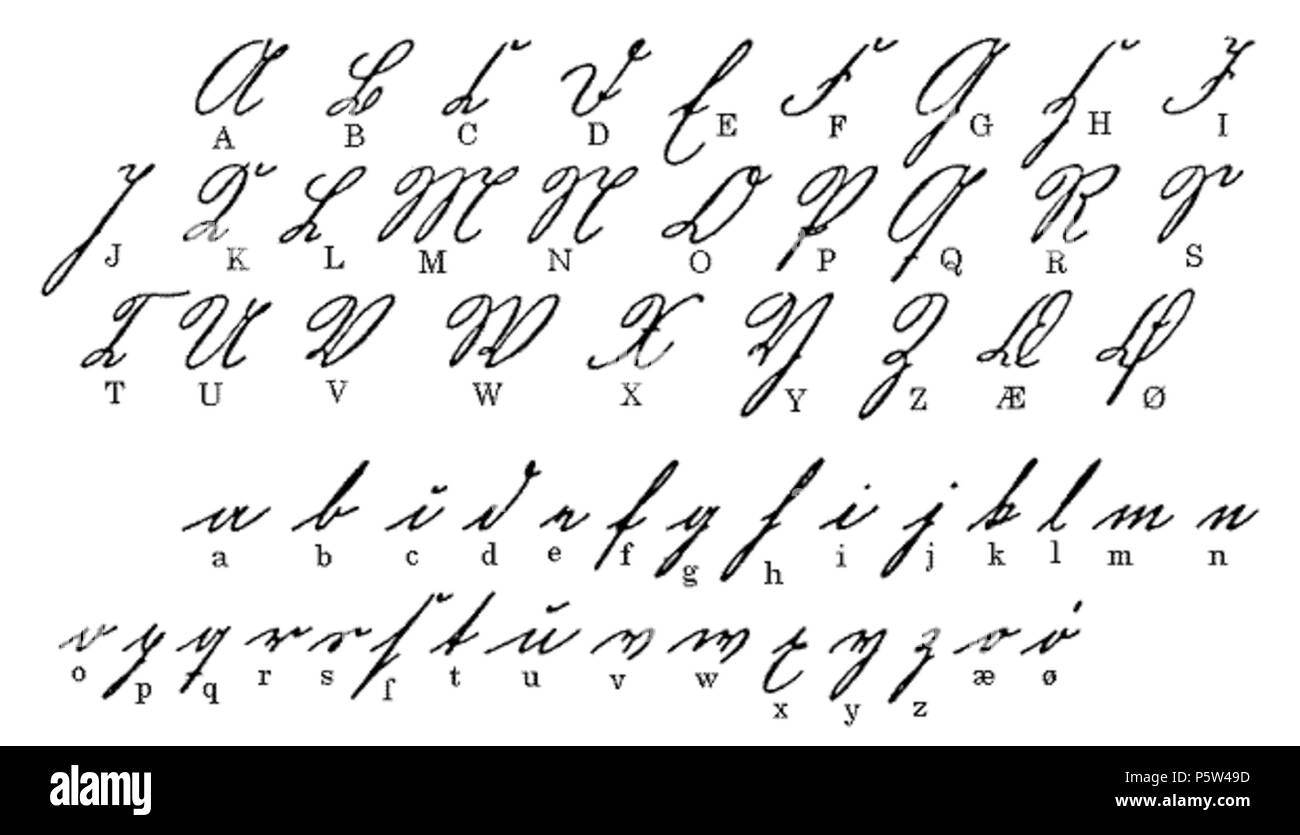 A B C D E F G H I
J K L M N O P Q R S
T U V W X Y Z Æ Ø
a b c d e f g h i j k l m n
o p q r s ſ t u v w x y z æ ø
alamy
Image ID: P5W49D
www.alamy.com